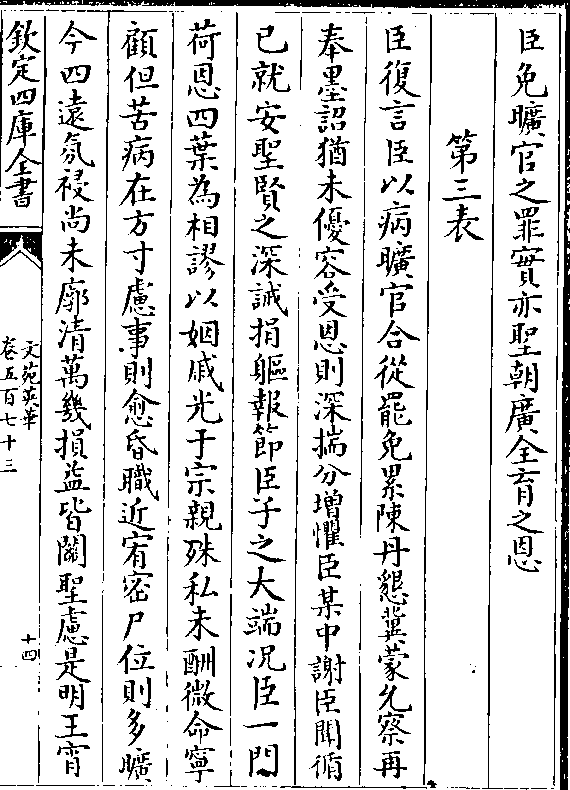 臣免曠官之罪實亦聖朝廣全育之恩
第三表
臣復言臣以病曠官合從罷免累陳丹懇冀蒙允察再
奉墨詔猶未優容受恩則深揣分增懼臣某中謝臣聞循
已就安聖賢之深誠捐軀報節臣子之大端况臣一門
荷恩四葉為相謬以姻戚光于宗親殊私未酬微命寧
顧但苦病在方寸慮事則愈昏職近宥密尸位則多曠
今四遠氛祲尚未廓清萬幾損益皆關聖慮是明王宵
欽定四庫全書
文苑英華
卷五百七十三
十四